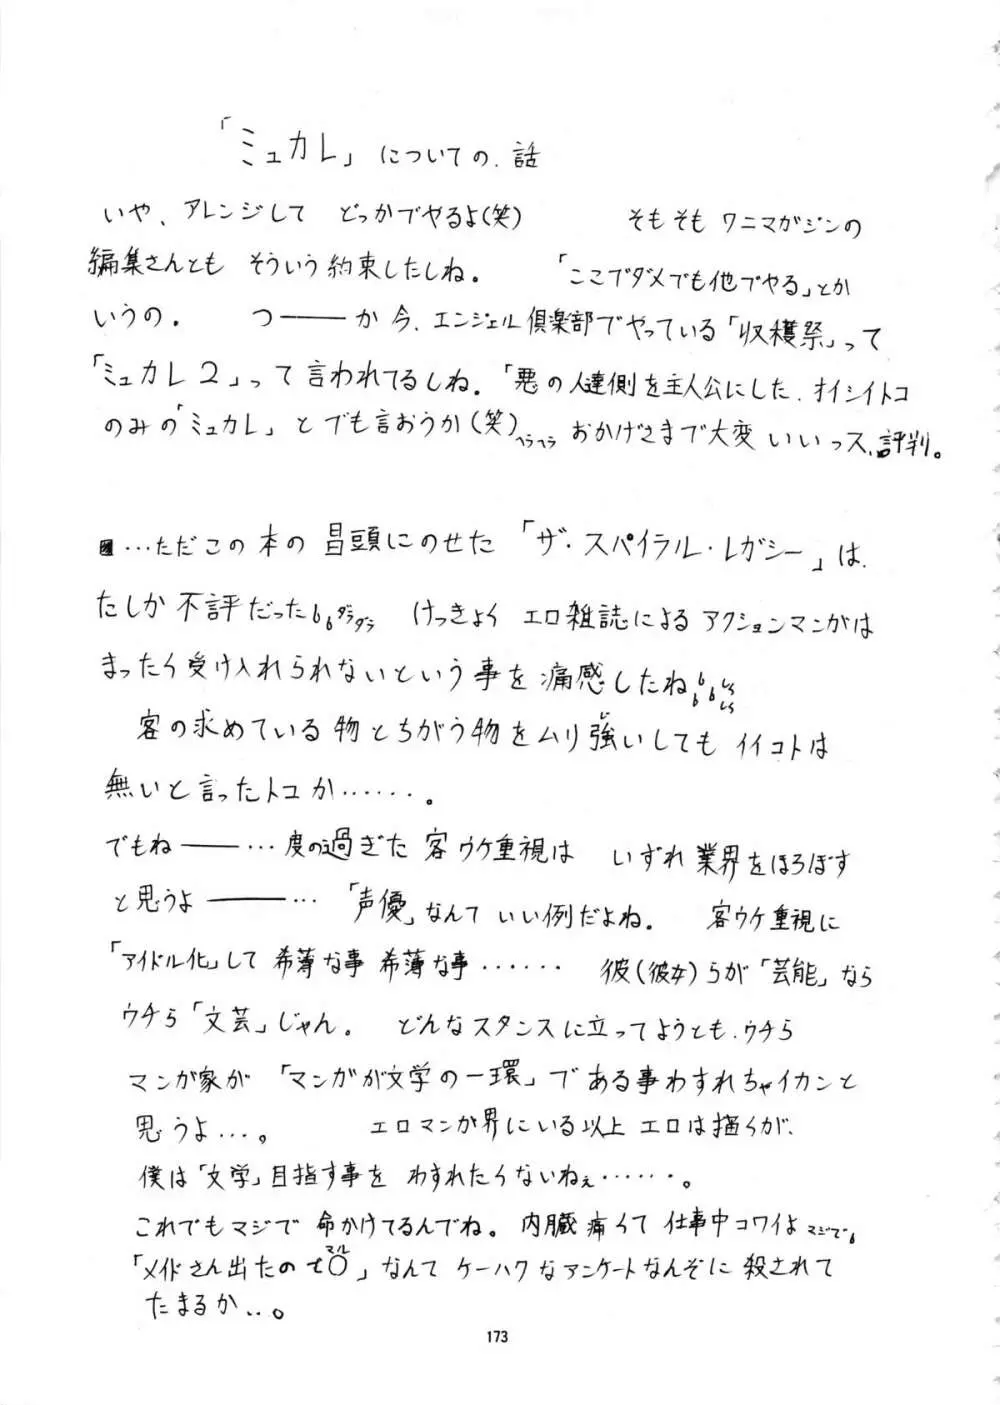 「ミュカレ」についての、話
いや、アレンジして どっかでやるよ(笑) そもそも ワニマガジンの
編集さんとも そういう約束したしね。 「ここでダメでも他でやる」とか
いうの。 つ───か 今、エンジェル倶楽部でやっている「収穫祭」って
「ミュカレ2」って言われてるしね。「悪の人達側を主人公にした、オイシイトコ
のみの「ミュカレ」とでも言おうか(笑)ヘラヘラ おかげさまで大変 いいっス、評判。
…ただこの本の冒頭にのせた「ザ・スパイラル・レガシー」は、
たしか不評だった ダラダラ けっきょく エロ雑誌によるアクションマンガは
まったく受け入れられないという事を痛感したね
客の求めている物とちがう物をムリ強いしても イイコトは
無いと言ったトコか‥‥‥。
でもね───… 度の過ぎた客ウケ重視は いずれ業界をほろぼす
と思うよ ───… 「声優」なんていい例だよね。 客ウケ重視に
「アイドル化」して 希薄な事 希薄な事‥‥‥ 彼(彼女)らが「芸能」なら
ウチら「文芸」じゃん。 どんなスタンスに立ってようとも、ウチら
マンガ家が 「マンガが文学の一環」である事わすれちゃイカンと
思うよ…。 エロマンガ界にいる以上 エロは描くが、
僕は「文学」目指す事を わすれたくないねぇ‥‥‥。
これでもマジで 命かけてるんでね。内臓痛くて 仕事中コワイよ マジで
「メイドさん出たので〇マル」なんて ケーハクなアンケートなんぞに 殺されて
たまるか…。
173